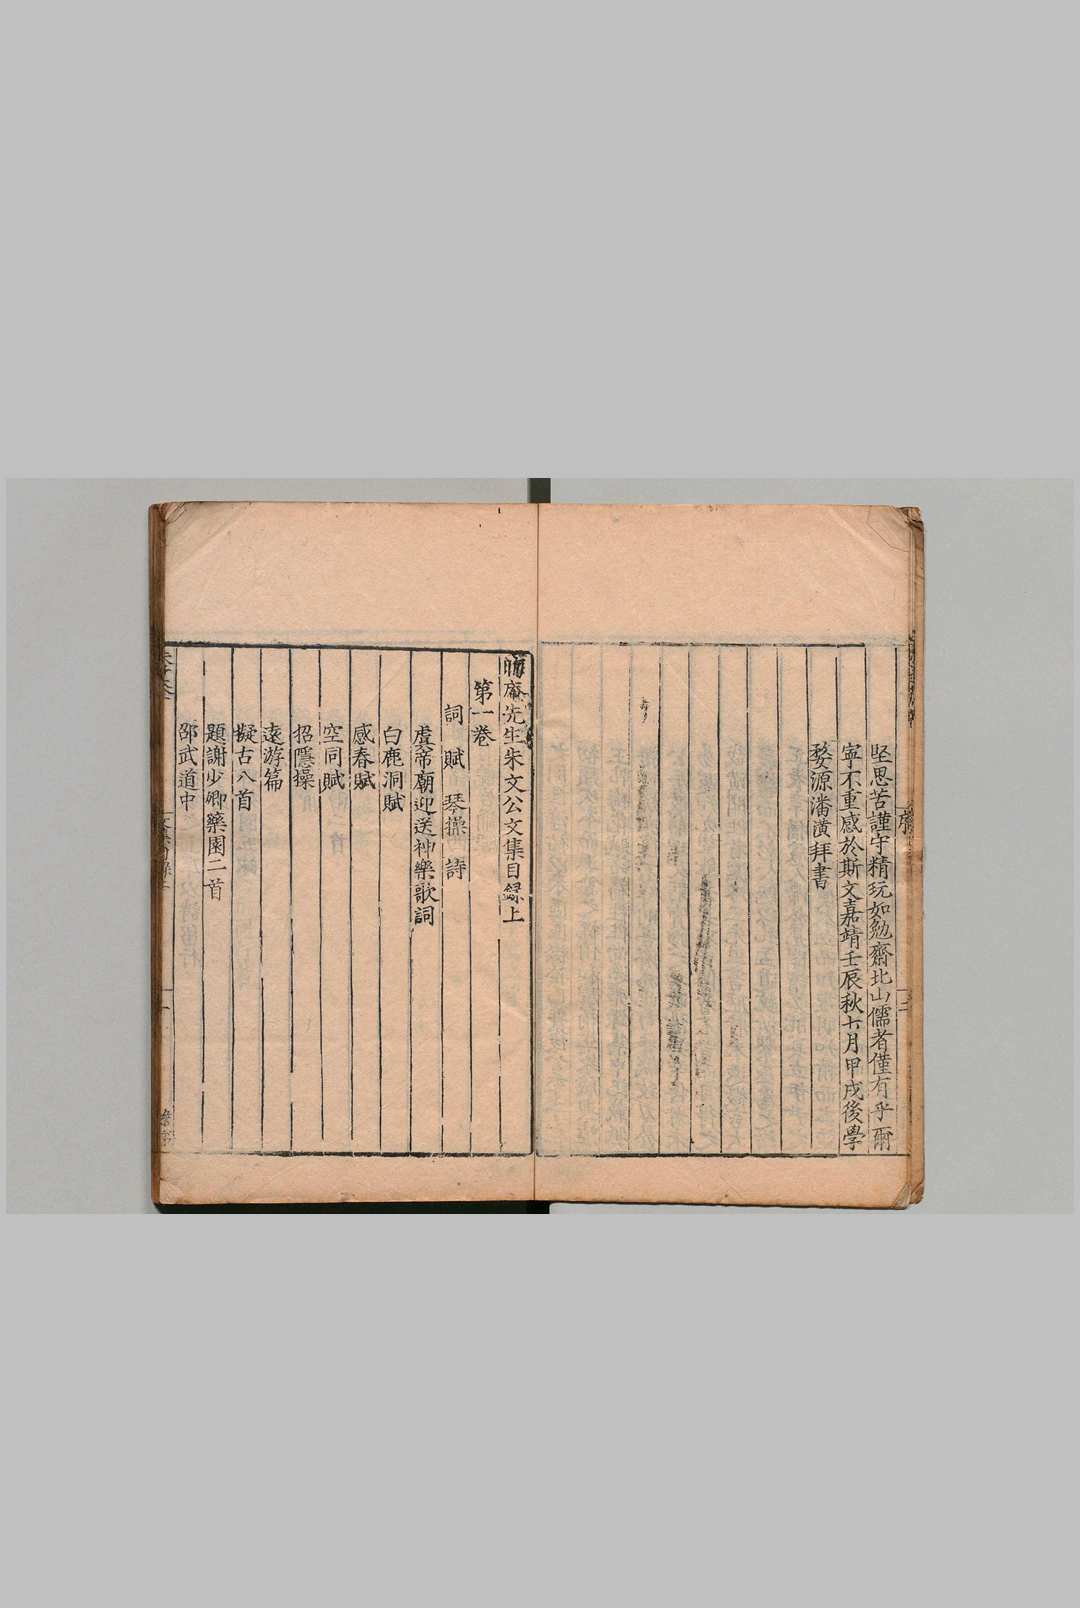 堅思苦謹守精玩如勉齋北山儒者僅有乎爾
寧不重感於斯文嘉靖壬辰秋七月甲戌後學
婺源潘潢拜書
晦庵先生朱文公文集目録上
第一卷
詞 賦 琴操 詩
虞帝廟迎送神樂歌詞
白鹿洞賦
感春賦
空同賦
招隱操
遠游篇
擬古八首
題謝少卿藥園二首
邵武道中